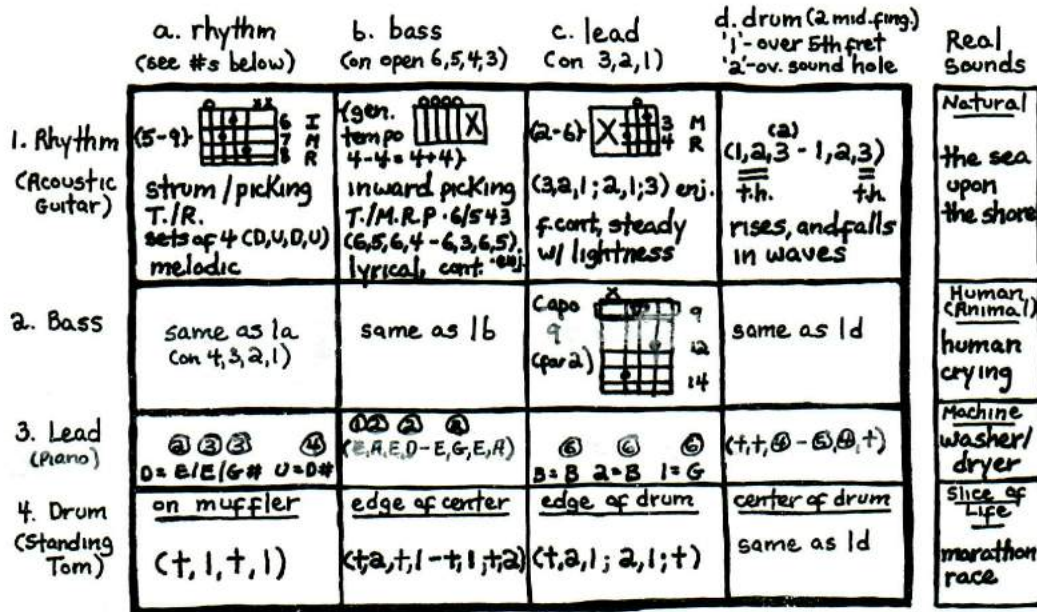 a. rhythm
(see #s below)
b. bass
(on open 6,5,4,3)
c. lead
(on 3,2,1)
d. drum (2 mid.fing.)
'1'-over 5th fret
'2'-ov. sound hole
Real
Sounds
1. Rhythm
(Acoustic
Guitar)
{5-9}
o xx
6 I
7 M
8 R
strum/picking
T./R.
sets of 4 (D,U,D,U)
melodic
{gen.
tempo
4-4=4+4}
oooo
X
inward picking
T./M.R.P.·6/543
(6,5,6,4-6,3,6,5).
lyrical, cont.
{2-6}
o
X
3 M
4 R
(3,2,1; 2,1;3) enj.
f.cont, steady
w/ lightness
(2)
(1,2,3 - 1,2,3)
t.h. t.h.
rises, and falls
in waves
Natural
the sea
upon
the shore
2. Bass
same as 1a
(on 4,3,2,1)
same as 1b
Capo
9
(for 2)
x
9
12
14
same as 1d
Human
(Animal)
human
crying
3. Lead
(Piano)
② ③ ③ ④
D=E/E/G# U=D#
① ② ②
(E,A,E,D-E,G,E,A)
⑥ ⑥ ⑥
3=B 2=B 1=G
(t,t,④-⑤,④,t)
Machine
washer/
dryer
4. Drum
(Standing
Tom)
on muffler
(t,1,t,1)
edge of center
(t,2,t,1-t,1,t,2)
edge of drum
(t,2,1; 2,1; t)
center of drum
same as 1d
Slice of
Life
marathon
race